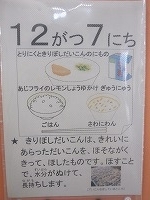 12がつ7にち
とりにくときりぼしだいこんのにもの
あじフライのレモンしょうゆがけ ぎゅうにゅう
ごはん
さわにわん
★ きりぼしだいこんは、きれいに
あらっただいこんを、ほそながく
きって、ほしたものです。ほすこと
で、水分がぬけて、
長持ちします。